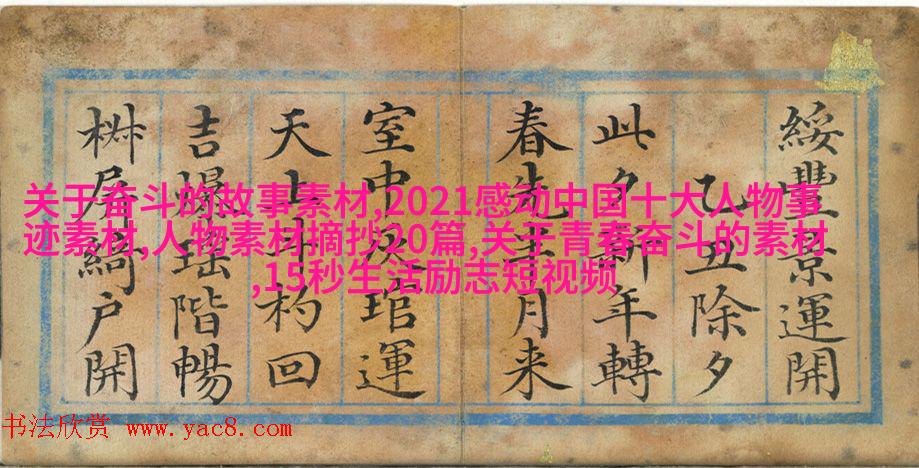 关于奋斗的故事素材,2021感动中国十大人物事
迹素材,人物素材摘抄20篇,关于青春奋斗的素材
,15秒生活励志短视频
綏豐景運開
乙丑除夕
此夕新年轉
春先王月来
室中灰琯運
天上斗杓回
吉爆瑶階暢
椒屏綺户開
书法欣赏 www.yac8.com